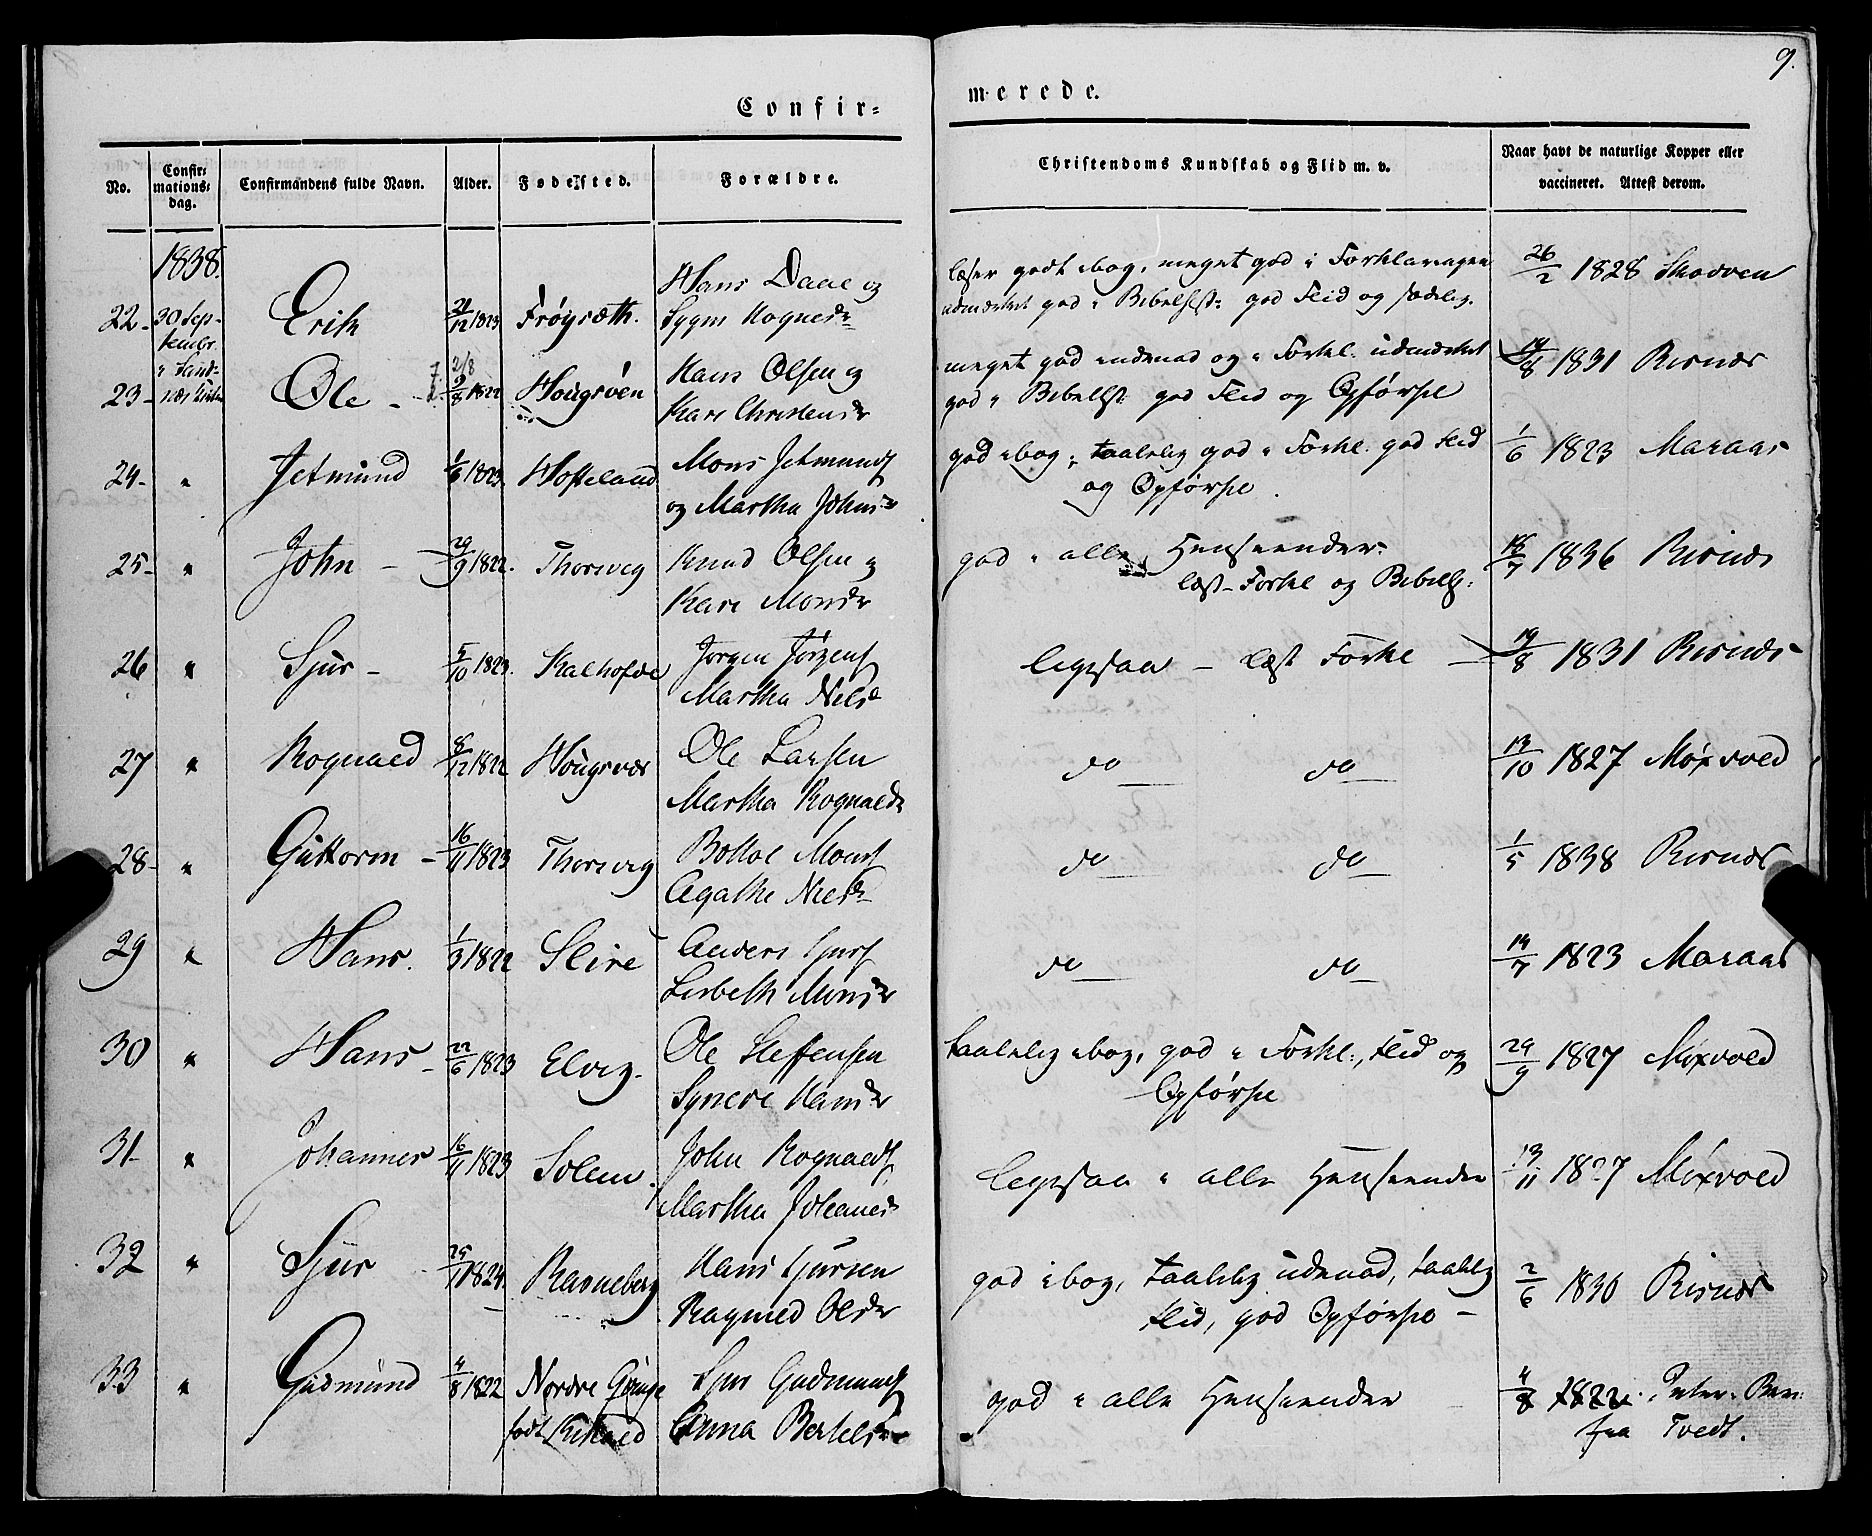 9.
Confir=
merede.
No.
Confir=
mations=
dag.
Confirmandens fulde Navn.
Alder.
Fødested.
Forældre.
Christendoms Kundskab og Flid m. v.
Naar havt de naturlige Kopper eller
vaccineret. Attest derom.
1838.
22- 30 Sep-
tembr.
Erik
21/12 1823
Frøyseth.
Hans Daae og
læser godt i bog, meget god i Forklaringen
udmærket god i Bibelhist: god Flid og sædelig.
26/2 1828
23-
Ole -
1822
Hougsvær
Hans Olsen og
Kari Christensdr
meget god indenad og i Forkl. udmærket
god i Bibelhst. god Flid og Opførsel
19/8 1831 Risnæs
24- "
Jetmund
1/6 1823
Hopeland
Mons Jetmunds
og Martha Johnsdr
god i bog, taalelig god i Forkl. god Flid
og Opførsel.
1/6 1823 Maraas
25- "
John -
29/9 1822.
Thorsvig
Knud Olsen og
Kari Monsdr
god i alle Henseender.
læst Forkl og Bibelh:
18/7 1836 Risnæs
26 "
Sjur -
5/10 1823.
Kalhofde
Jørgen Jørgens
Martha Nelsdr
ligesaa - læst Forkl -
19/8 1831 Risnæs
27 "
Rognald
8/12 1822
Hougsvær
Ole Larsen
Martha Rognaldsdr
do do
13/10 1827 Møxvold
28- "
Guttorm -
16/11 1823
Thorsvig
Agathe Nielsdr
do do
1/5 1838 Risnæs
29 "
Hans.
1/3 1822
Slire
Anders Sjurs
Lisbeth Monsdr
do do
14/7 1823 Maraas
30 "
Hans -
22/6 1823
Elvig.
Ole Steffensen
Synneve Hansdr
taalelig i bog, god i Forkl., Flid og
Opførsel
29/9 1827 Møxvold
31- "
Johannes
16/11 1823
Solem.
John Rognalds
Martha Johannesdr
ligesaa i alle Henseender
13/11 1827 Møxvold
32 "
Sjur
1824
Ravneberg
Hans Sjursen
Ragnild Olsdr
god i bog, taalelig udenad, taalelig
Flid, god Opførsel -
2/6 1830 Risnæs
33 "
Gudmund
4/8 1822
Nordre
født
Sjur Gudmunds
Anna Bertelsdr
god i alle Henseender
4/8 1822. Peter
fra Tvedt.